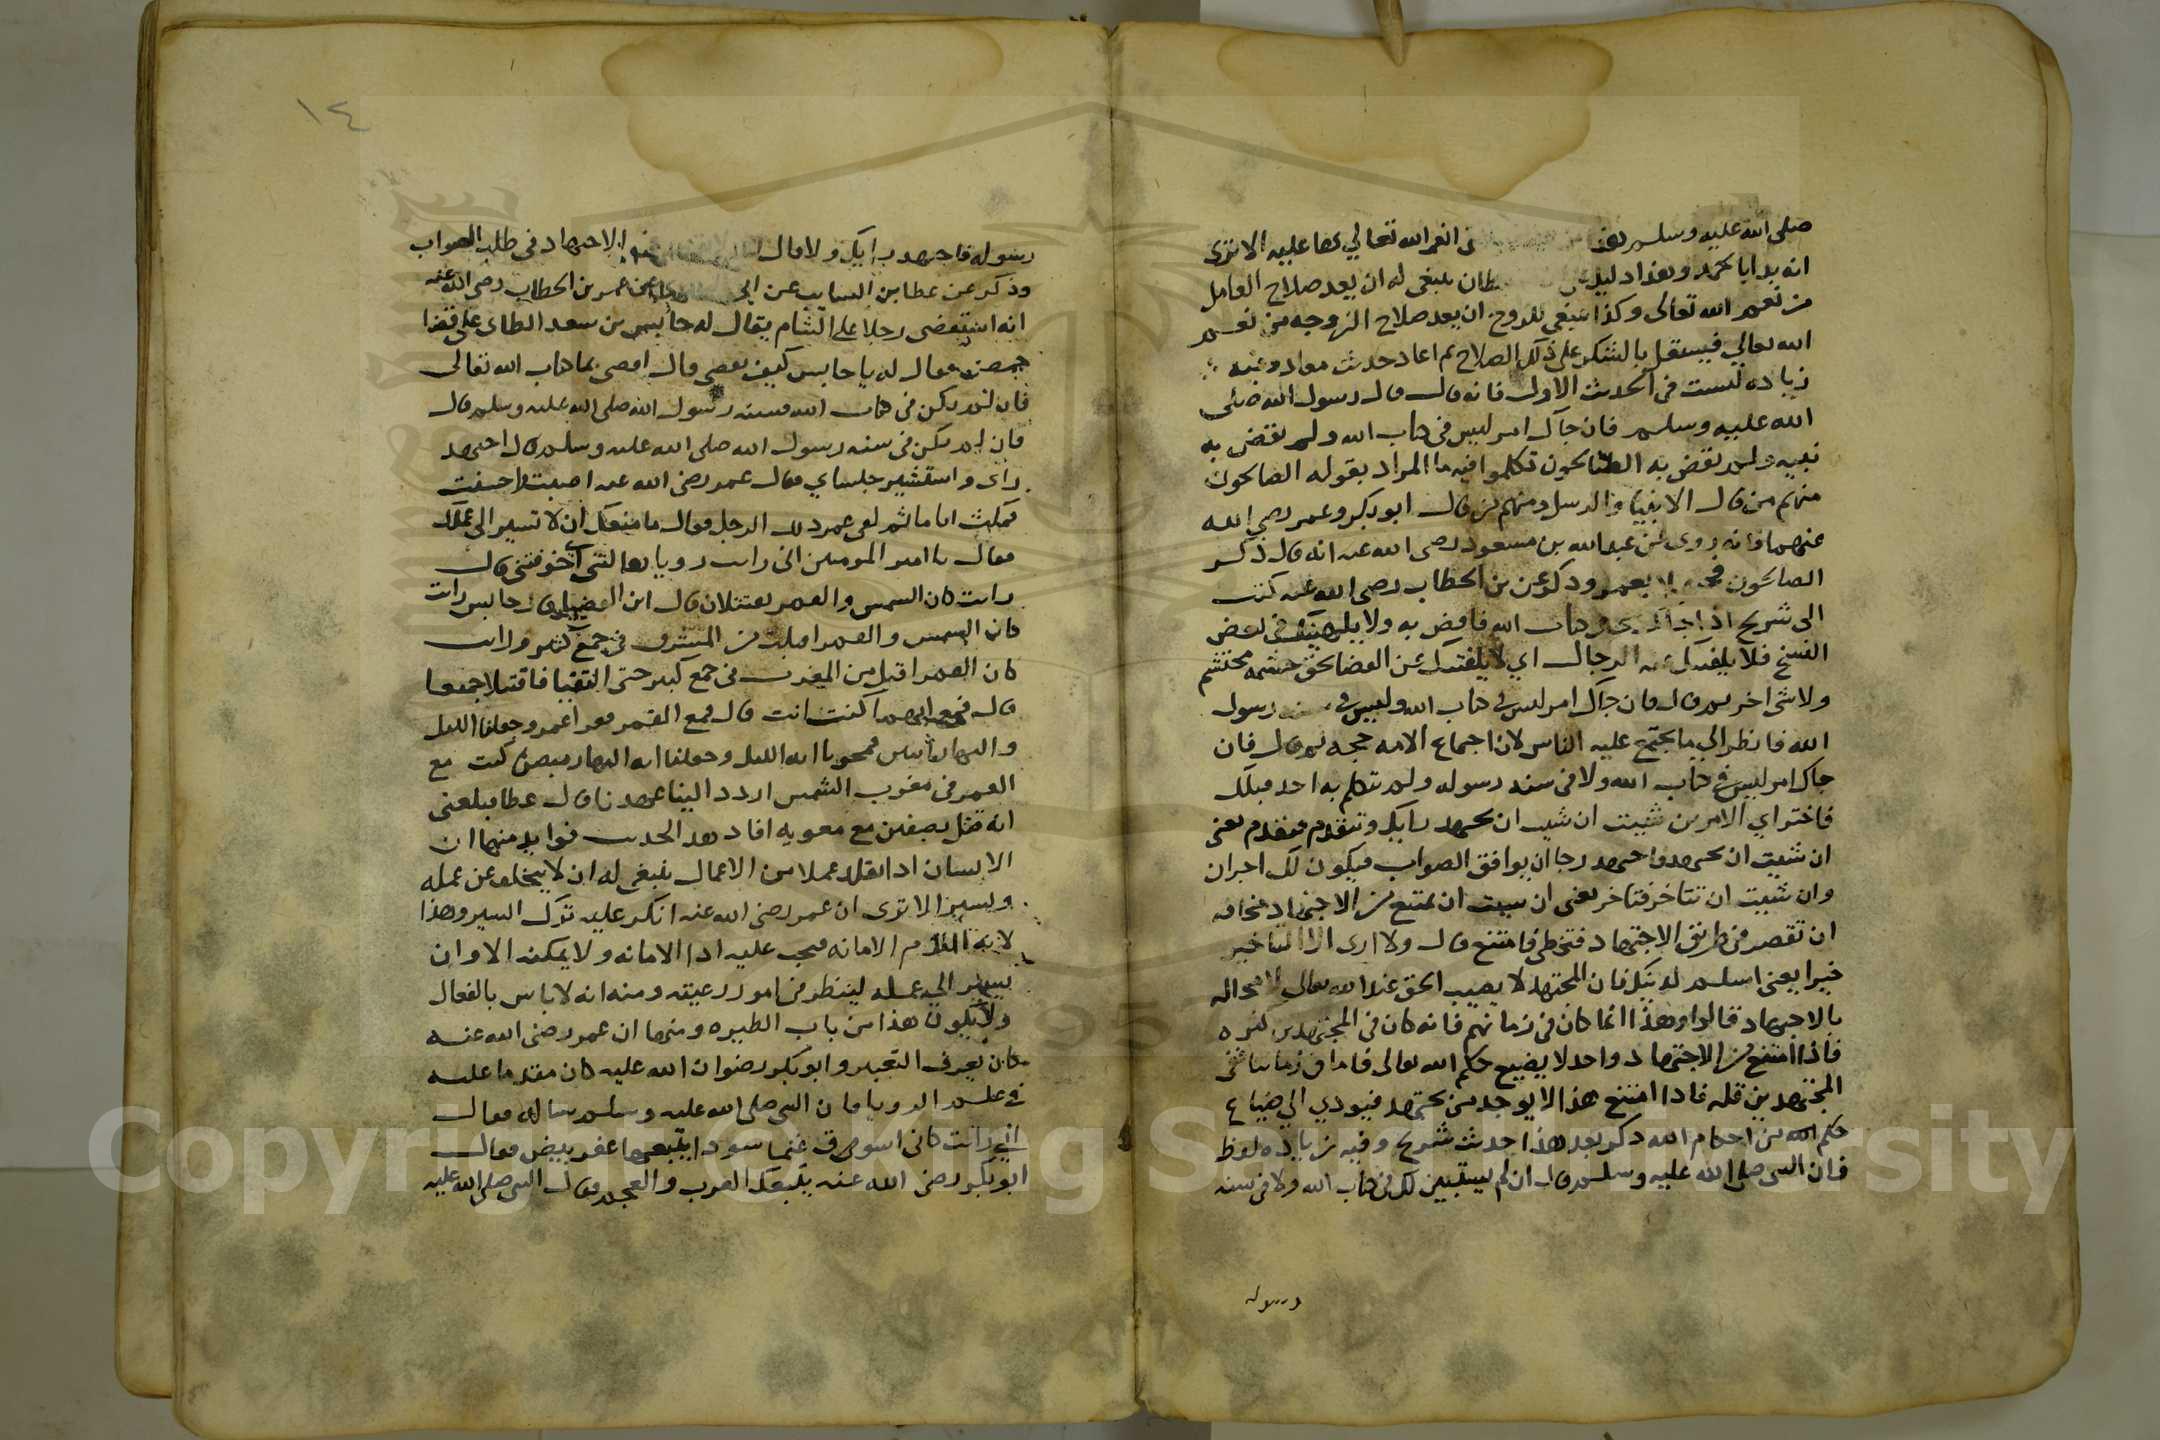 صلى الله عليه وسلم انعم الله تعالي بها عليه الا ترى
انه بدا بالحمد وهذا دليل ينبغي له ان يعد صلاح العامل
من نعم الله تعالى وكذا ينبغي للزوج ان يعد صلاح الزوجه من نعم
الله تعالي فيستقبل بالشكر على ذلك الصلاح ثم اعاد حديث معاد وفيه
زياده ليست في الحديث الاول فانه قال قال رسول الله صلى
الله عليه وسلم فان جآك امر ليس في كتاب الله ولم يقض به
نبيه ولم يقض به الصالحون تكلموا فيه ما المراد بقوله الصالحون
منهم من قال الانبيا والرسل ومنهم من قال ابوبكر وعمر رضي الله
عنهما فانه روى عن عبد الله بن مسعود رضى الله عنه انه قال ذكر
الصالحون بعمر وذكر عن بن الخطاب رضى الله عنه كتب
الى شريح اذا جآك في كتاب الله فاقض به ولا
النسخ فلا يلفتنك عنه الرجال اي لا يلفتنك عن القضا بحق حشمه محتشم
ولا شي اخر ثم قال فان جآك امر ليس في كتاب الله وليس في سنه رسول
الله فانظر الي ما يجتمع عليه الناس لان اجماع الامه حجه ثم قال فان
جاك امر ليس في كتاب الله ولا في سنه رسوله ولم تكلم به احد قبلك
فاختر اي الامرين شيت ان شيت ان تجتهد رايك وتتقدم فتقدم يعنى
ان شيت ان تجتهد فاجتهد رجا ان يوافق الصواب فيكون لك اجران
وان شيت ان تتاخر فتاخر يعنى ان شيت ان تمتنع من الاجتهاد مخافه
ان تقصر في طريق الاجتهاد فتخطي فامتنع قال ولا ارى الا التاخير
خيرا يعنى اسلم لدينك فان المجتهد لا يصيب الحق عند الله تعالى لا محاله
بالاجتهاد قالوا وهذا انما كان في زمانهم فانه كان في المجتهدين كثره
فاذا امتنع من الاجتهاد واحد لا يضيع حكم الله تعالى فاما في زماننا ففي
المجتهدين قله فاذا امتنع هذا لا يوجد من يجتهد فيودي الي ضياع
حكم الله من احكام الله ذكر بعد هذا حديث شريح وفيه زياده لفظ
فان النبي صلى الله عليه وسلم قال ان لم يستبين لك في كتاب الله ولا في سنه
رسوله
١٤
رسوله فاجتهد برايك ولا قال الاجتهاد في طلب الصواب
وذكر عن عطا بن السايب عن عن عمر بن الخطاب رضي الله عنه
انه استقضى رجلا على الشام يقال له حابس بن سعد الطاى على قضا
حمص فقال له يا حابس كيف تقضي قال اقضي بما في كتاب الله تعالى
فان لم يكن في كتاب الله فبسنه رسول الله صلى الله عليه وسلم قال
فان لم يكن في سنه رسول الله صلى الله عليه وسلم قال اجتهد
راى واستشير جلساي فقال عمر رضى الله عنه اصبت واحسنت
فمكث اياما ثم لقى عمر ذلك الرجل فقال ما منعك ان لا تسير الى عملك
فقال يا امير المومنين انى رايت رويا هالتنى اخوفتنى قال
رايت كان الشمس والقمر يقتتلان قال ابن الفضيل قال حابس رايت
كان الشمس والقمر اقبلت من المشرق في جمع كثير ورايت
كان القمر اقبل من المغرب في جمع كبير حتى التقيا فاقتتلا جميعا
قال فمع ايهما كنت انت قال مع القمر فقرا عمر وجعلنا الليل
والنهار ايتين فمحونا ايه الليل وجعلنا ايه النهار مبصره كنت مع
القمر في مغرب الشمس اردد الينا عهدنا قال عطا فبلغنى
انه قتل بصفين مع معويه افاد هذا الحديث فوايد منها ان
الانسان اذا تقلد عملا من الاعمال ينبغي له ان لا يتخلف عن عمله
ويسير الا ترى ان عمر رضى الله عنه انكر عليه ترك السير وهذا
لانه التزم الامانه فيجب عليه ادا الامانه ولا يمكنه الا وان
يسير الي عمله لينظر في امور رعيته ومنه انه لا باس بالفعال
ولا يكون هذا من باب الطيره ومنها ان عمر رضى الله عنه
كان يعرف التعبير وابوبكر رضوان الله عليه كان مقدما عليه
في علم الرويا فان النبي صلى الله عليه وسلم ساله فقال
اني رايت كانى اسوق غنما سودا يتبعها عفر بيض فقال
ابوبكر رضى الله عنه يتبعك العرب والعجم فقال النبي صلى الله عليه
Copyright © King Saud University